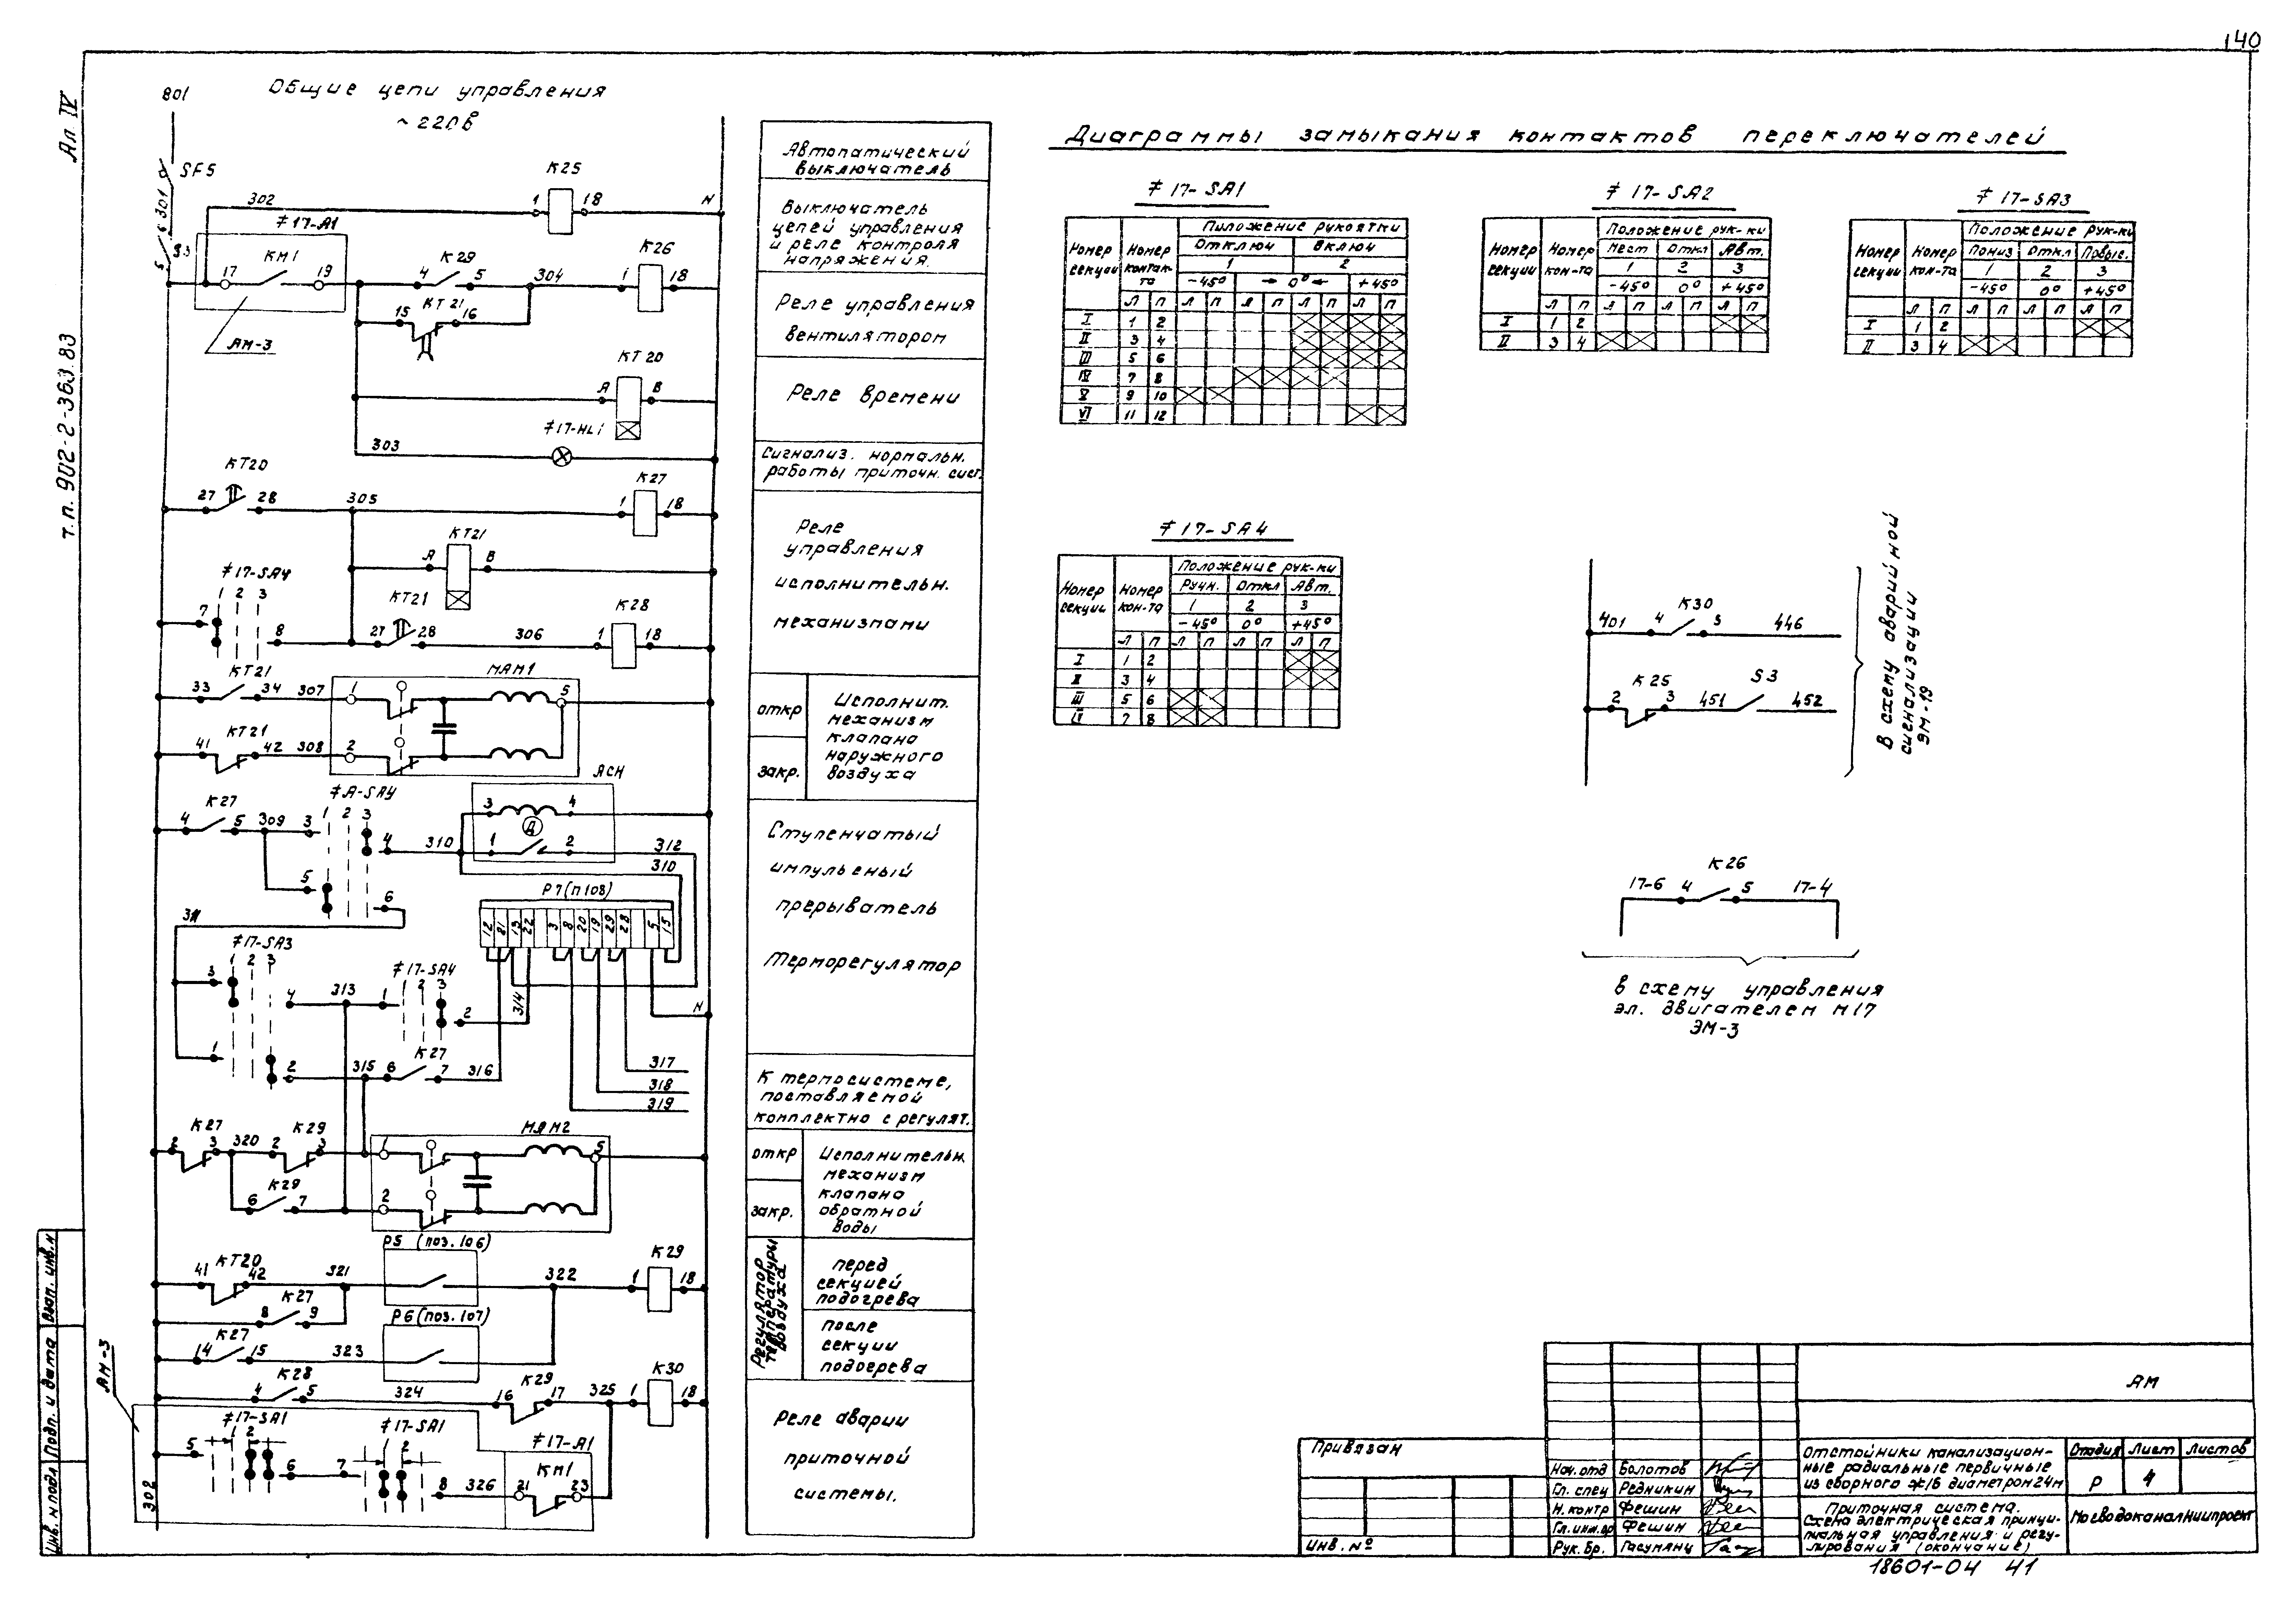 140
Ал IV
т.п. 902-2-363.83
Общие цепи управления
~220в
801
SF5
301
S3
302
К25
1 18
N
≠17-А1
КМ1
17 19
АМ-3
К29
4 5
304
К26
1 18
КТ21
15 16
КТ20
А В
≠17-HL1
303
КТ20
27 28
305
К27
1 18
КТ21
А В
≠17-SA4
1 2 3
7 8
КТ21
27 28
306
К28
1 18
КТ21
33 34
307
МАМ1
1 5
КТ21
41 42
308
2
АСН
≠А-SАУ
1 2 3
К27
4 5
309
3 4
310
3 4
Д
1 2
312
310
5 6
311
Р7(П108)
12 21 13 22 3 8 20 19 29 28 5 15
≠17-SA3
1 2 3
3 4
313
≠17-SA4
1 2 3
1 2
314
N
1 2
315
К27
6 7
316
317
318
319
К27
2 3
320
К29
2 3
МАМ2
1 5
К29
6 7
2
КТ20
41 42
321
Р5 (поз.106)
322
К29
1 18
К27
8 9
Р6(поз.107)
К27
14 15
323
К28
4 5
324
К29
16 17
325
К30
1 18
АМ-3
≠17-SA1
1 2
5 6
≠17-SA1
1 2
7 8
326
≠17-А1
КМ1
21 23
302
Автоматический
выключатель
Выключатель
цепей управления
и реле контроля
напряжения.
Реле управления
вентилятором
Реле времени
Сигнализ. нормальн.
работы приточн. сист.
Реле
управления
исполнительн.
механизмами
откр
закр.
Исполнит.
механизм
клапана
наружного
воздуха
Ступенчатый
импульсный
прерыватель
Терморегулятор
К термосистеме,
поставляемой
комплектно с регулят.
откр
закр.
Исполнительн.
механизм
клапана
обратной
воды
Регулятор
температуры
воздуха
перед
секцией
подогрева
после
секции
подогрева
Реле аварии
приточной
системы.
Диаграммы замыкания контактов переключателей
≠17-SA1
Номер
секции
Номер
контак-
та
Положение рукоятки
Отключ Включ
1 2
-45° → 0° ← +45°
Л П Л П Л П Л П Л П
I 1 2
II 3 4
III 5 6
IV 7 8
V 9 10
VI 11 12
≠17-SA2
Номер
секции
Номер
кон-та
Положение рук-ки
Мест Откл Авт.
1 2 3
-45° 0° +45°
Л П Л П Л П Л П
I 1 2
II 3 4
≠17-SA3
Номер
секции
Номер
кон-та
Положение рук-ки
Пониз Откл Повыс.
1 2 3
-45° 0° +45°
Л П Л П Л П Л П
I 1 2
II 3 4
≠17-SA4
Номер
секции
Номер
кон-та
Положение рук-ки
Ручн. Откл Авт.
1 2 3
-45° 0° +45°
Л П Л П Л П Л П
I 1 2
II 3 4
III 5 6
IV 7 8
401
К30
4 5
446
К25
2 3
451
S3
452
В схему аварийной
сигнализации
ЭМ-19
17-6
К26
4 5
17-4
В схему управления
эл. двигателем М17
ЭМ-3
Привязан
Инв. №
Нач. отд Болотов
Гл. спец Редникин
Н. контр Фешин
Гл. инж. пр Фешин
Рук. бр. Гасумянц
АМ
Отстойники канализацион-
ные радиальные первичные
из сборного ж/б диаметром 24м
Стадия Лист Листов
Р 4
Приточная система.
Схема электрическая принци-
пиальная управления и регу-
лирования (окончание)
Мосводоканалниипроект
18601-04 41
Взам. инв. н
Подп. и дата
Инв. н подл